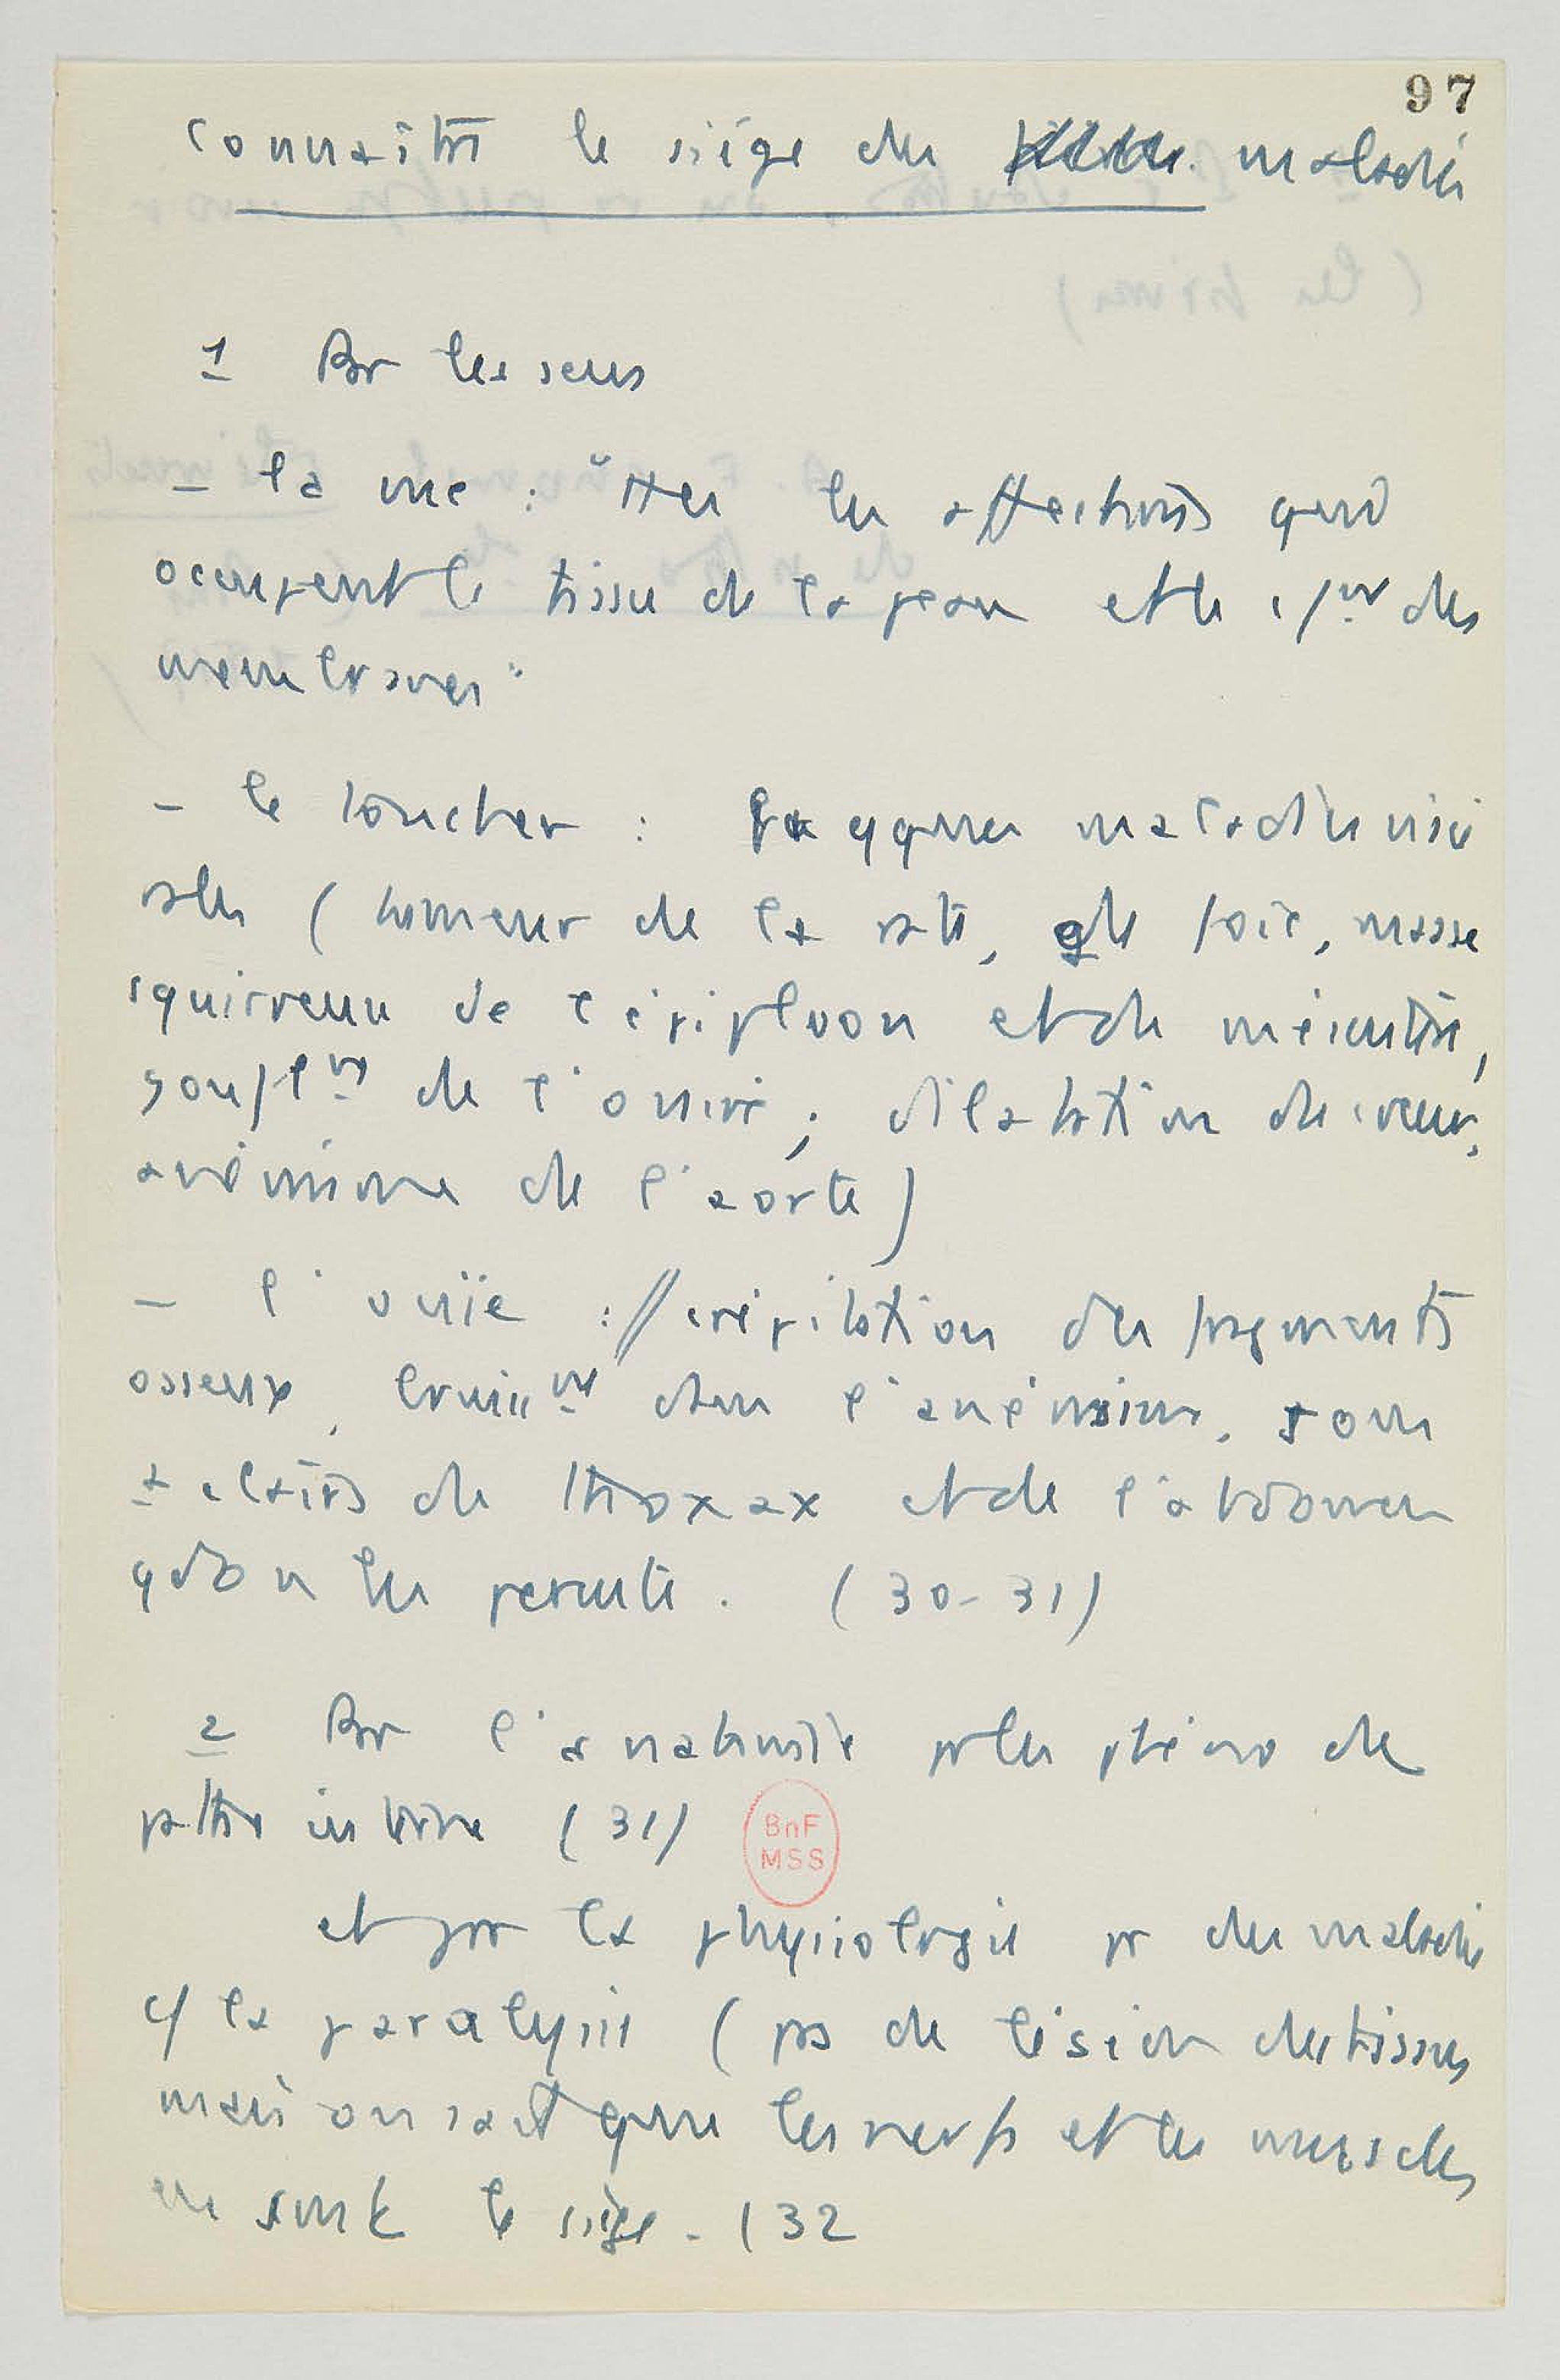 97
Connaître le siège des maladies
1 Par les sens
- la vue : "ttes les affections qui
occupent le tissu de la peau et le cpmt des
membranes"
- le toucher : qques maladies viscé
rales (tumeur de la rate, du foie, masse
squirreuse de l'épiploon et du mésentère,
gonflmt de l'ovaire ; dilatation du cœur,
anévrisme de l'aorte)
- l'ouïe : crépitation des fragments
osseux, bruissmt dans l'anévrisme, sons
+ clairs du thorax et de l'abdomen
qd on les percute. (30-31)
2 Par l'anatomie pr les phéno de
pathie interne (31)
et par la physiologie pr des maladies
c/ la paralysie (pas de lésion des tissus
mais on sait que les nerfs et les muscles
en sont le siège. (32
BnF
MSS